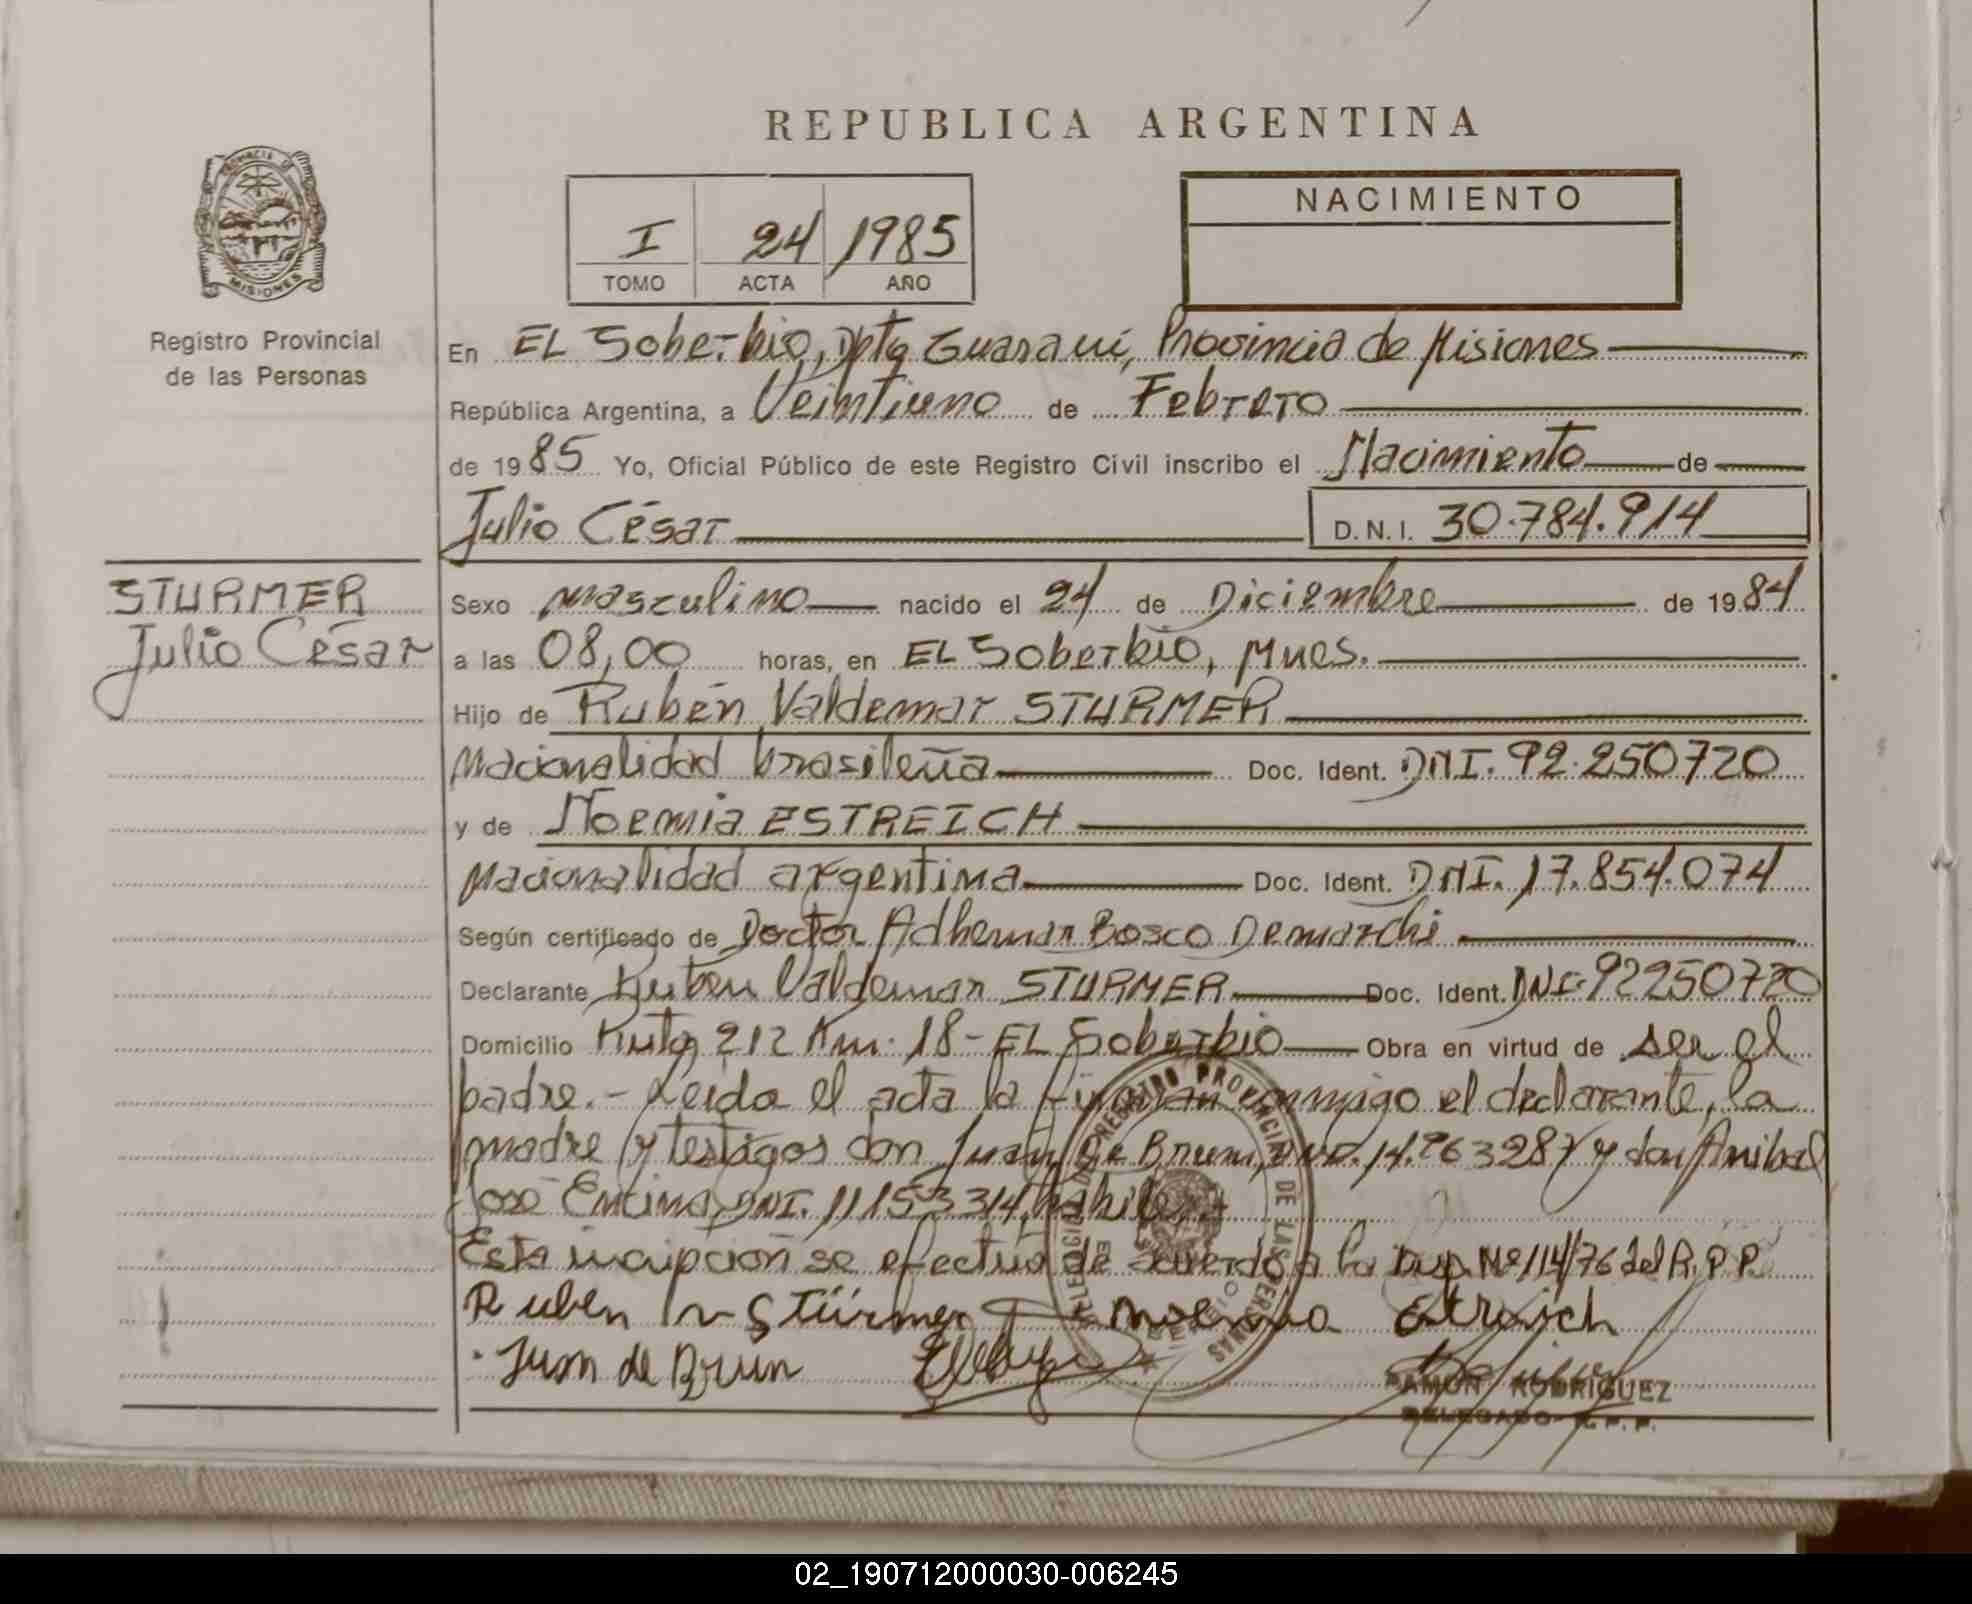 REPUBLICA ARGENTINA
PROVINCIA DE MISIONES
Registro Provincial
de las Personas
I 24 1985
TOMO ACTA AÑO
NACIMIENTO
En EL Soberbio, Dpto Guaraní, Provincia de Misiones
República Argentina, a Veintiuno de Febrero
de 1985 Yo, Oficial Público de este Registro Civil inscribo el Nacimiento de
Julio César D.N.I. 30.784.914
STURMER
Julio César
Sexo masculino nacido el 24 de Diciembre de 1984
a las 08,00 horas, en EL Soberbio, Mnes.
Hijo de Rubén Valdemar STURMER
Nacionalidad brasileña Doc. Ident. DNI. 92.250720
y de Noemia ESTREICH
Nacionalidad argentina Doc. Ident. DNI. 17.854.074
Según certificado de Doctor Adhemar Bosco Demarchi
Declarante Ruben Valdemar STURMER Doc. Ident. DNI. 92250720
Domicilio Ruta 212 Km. 18 - EL Soberbio Obra en virtud de ser el
padre.- Leida el acta la firman conmigo el declarante, la
madre y testigos don Juan De Brum, 14.263287 y don Anibal
José Encina, DNI. 11153314, habiles.
Esta incripción se efectua de acuerdo a la Disp. Nº 114/76 del R.P.P.
Ruben v Stürmer Noemia Estreich
Juan de Brun
RAMON RODRIGUEZ
DELEGADO R.P.P.
REGISTRO PROVINCIAL DE LAS PERSONAS
02_190712000030-006245